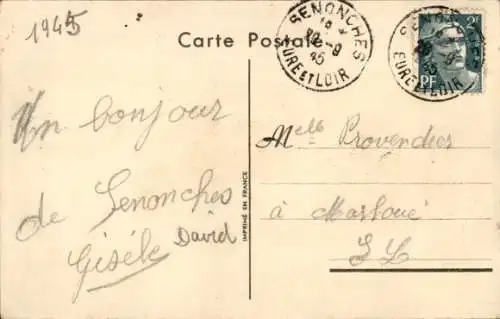 1945
Carte Postale
SENONCHES
EURE ET LOIR
45
SENONCHES
EURE ET LOIR
45
2F
RF
Un bonjour
de Senonches
Gisèle David
IMPRIMÉ EN FRANCE
Melle Provendier
à Marboué
E L